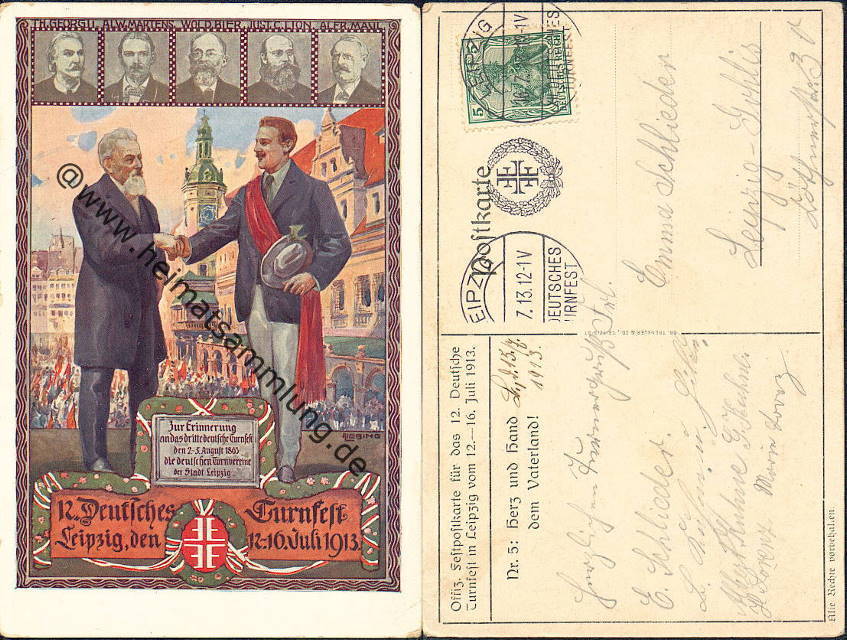 TH. GEORGII. ALW. MARTENS. WOLD. BIER. JUST. C. LION. ALFR. MAUL
Zur Erinnerung
an das dritte deutsche Turnfest
den 2-5. August 1863
die deutschen Turnvereine
der Stadt Leipzig.
LIEBING
12. Deutsches Turnfest
Leipzig, den 12-16. Juli 1913.
@www.heimatsammlung.de
Offiz. Festpostkarte für das 12. Deutsche
Turnfest in Leipzig vom 12.–16. Juli 1913.
Nr. 5: Herz und Hand
dem Vaterland!
Postkarte
LEIPZIG
5
DEUTSCHES REICH
LEIPZIG
7.13.12-1V
DEUTSCHES
TURNFEST
1913.
Herzlichen Turnergruß
E. Schlieder.
Frl.
Emma Schlieder
Leipzig-Gohlis
Alle Rechte vorbehalten.